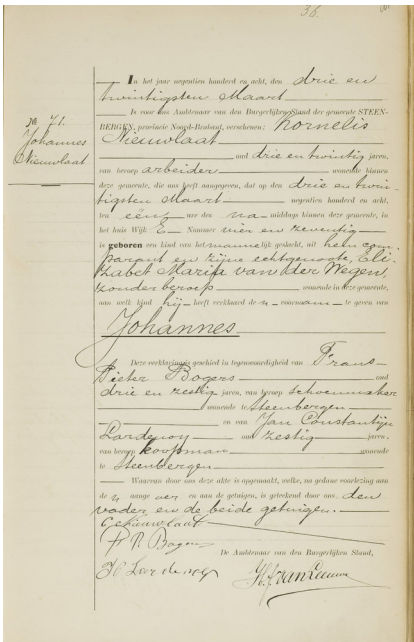 36.
In het jaar negentien honderd en acht, den drie en
twintigsten Maart
Is voor ons Ambtenaar van den Burgerlijken Stand der gemeente STEEN-
BERGEN, provincie Noord-Brabant, verschenen: Kornelis
Nieuwlaat
oud drie en twintig jaren,
van beroep arbeider wonende binnen
deze gemeente, die ons heeft aangegeven, dat op den drie en twin-
tigsten Maart negentien honderd en acht,
ten één ure des na-middags binnen deze gemeente, in
het huis Wijk E Nummer vier en zeventig
is geboren een kind van het mannelijk geslacht, uit hem com-
parant en zijne echtgenoote, Eli-
zabet Maria van der Wegen,
zonder beroep wonende in deze gemeente,
aan welk kind hij heeft verklaard de n voornaam te geven van
Johannes
Deze verklaring is geschied in tegenwoordigheid van Frans
Pieter Bogers oud
drie en zestig jaren, van beroep schoenmaker
wonende te Steenbergen
en van Jan Constantijn
Lardenoy oud zestig jaren,
van beroep koopman wonende
te Steenbergen
Waarvan door ons deze akte is opgemaakt, welke, na gedane voorlezing aan
de n aangever en aan de getuigen, is geteekend door ons, den
vader en de beide getuigen.
C Nieuwlaat
Fr. P. Bogers
De Ambtenaar van den Burgerlijken Stand,
JC Lardenoy
van Leeuwe
no 71.
Johannes
Nieuwlaat